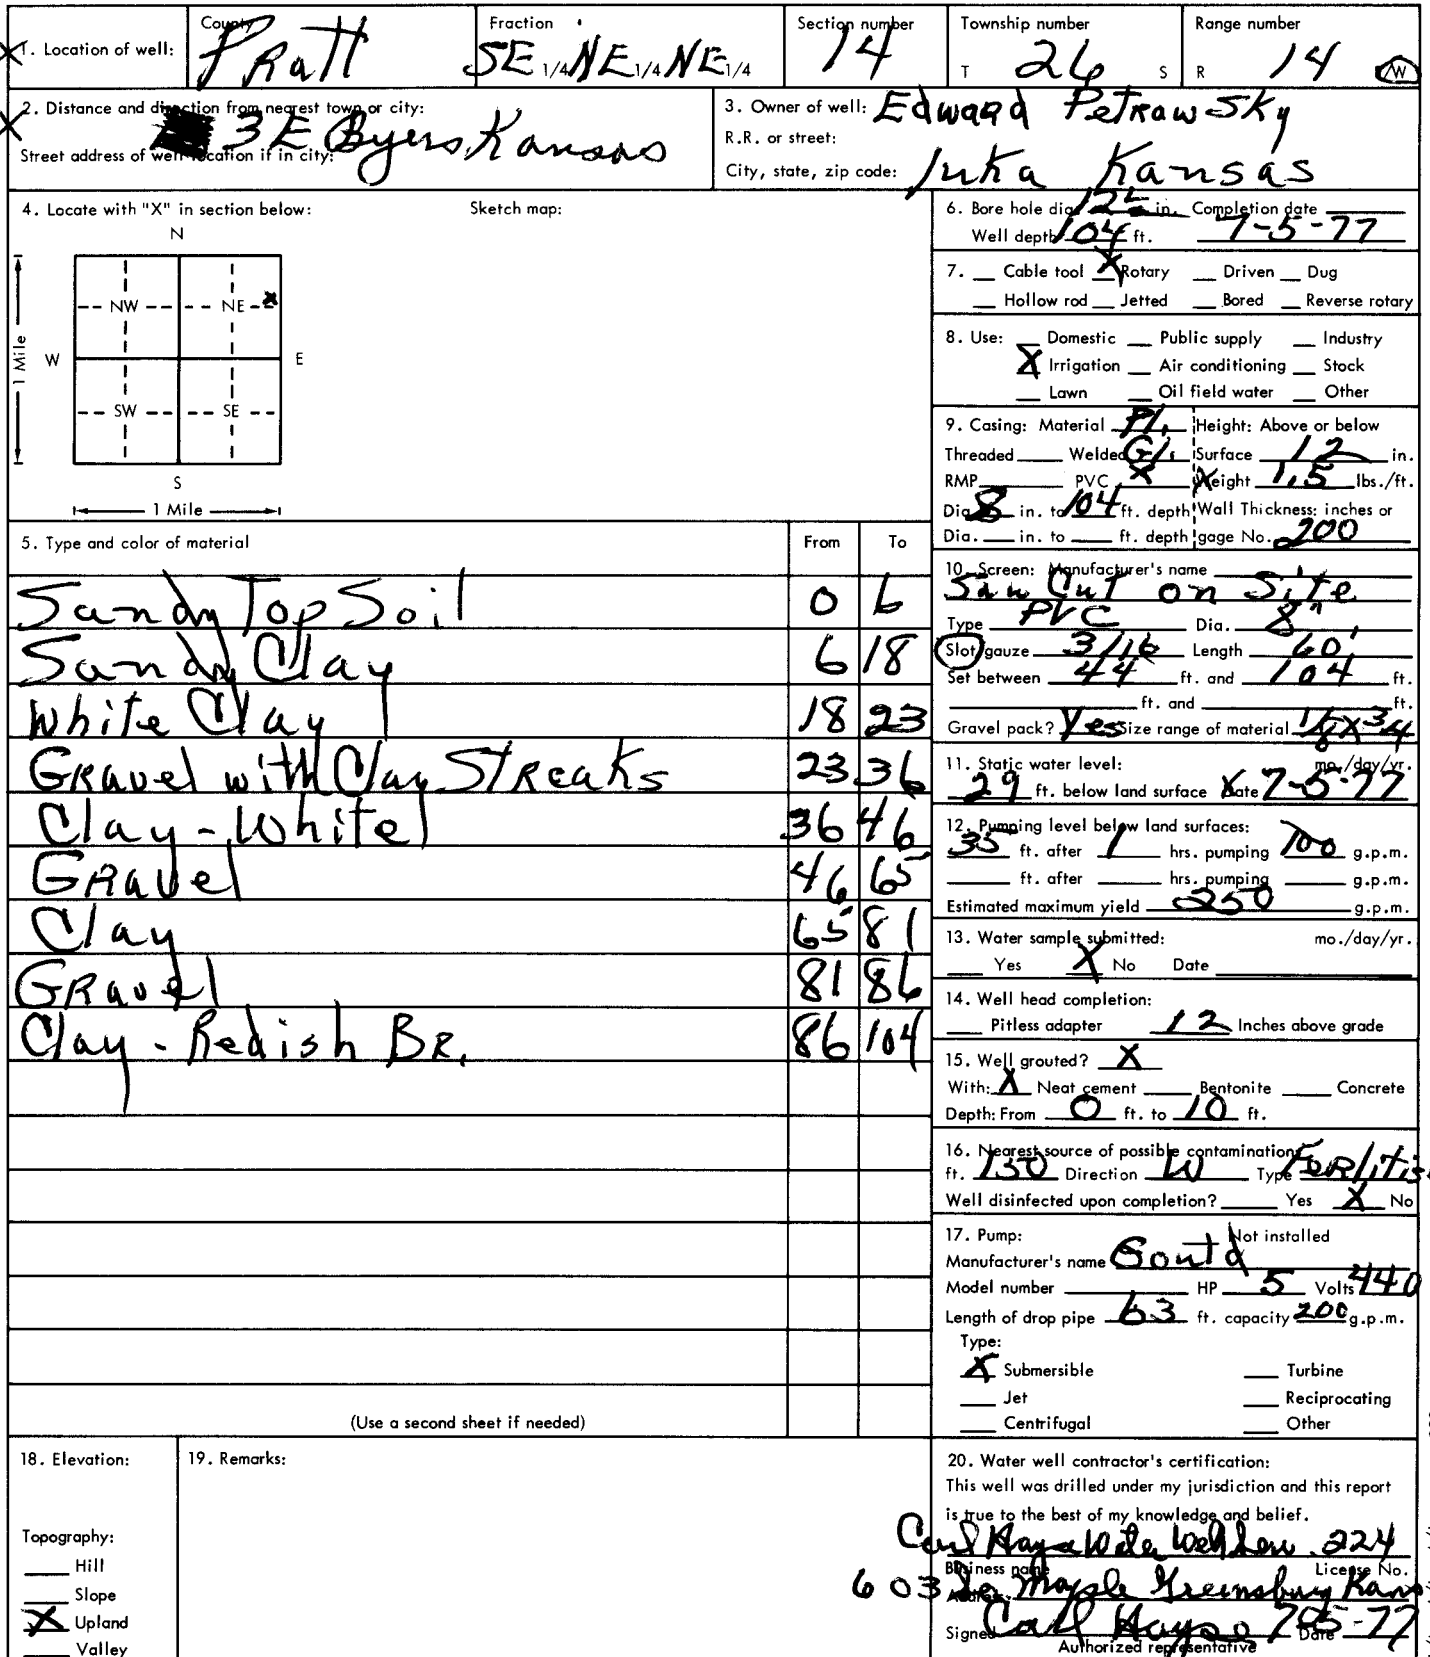 County Fraction Section number Township number Range number
1. Location of well: Pratt SE 1/4 NE 1/4 NE 1/4 14 T 26 S R 14 /W
2. Distance and direction from nearest town or city:
3 E Byers, Kansas
Street address of well location if in city:
3. Owner of well: Edward Petrowsky
R.R. or street:
City, state, zip code: Iuka Kansas
4. Locate with "X" in section below: Sketch map:
N
NW NE X
W E
1 Mile
SW SE
S
1 Mile
5. Type and color of material From To
Sandy Top Soil 0 6
Sandy Clay 6 18
White Clay 18 23
Gravel with Clay Streaks 23 36
Clay - White 36 46
Gravel 46 65
Clay 65 81
Gravel 81 86
Clay - Redish Br. 86 104
(Use a second sheet if needed)
6. Bore hole dia. in. Completion date
Well depth 104 ft. 7-5-77
7. Cable tool X Rotary Driven Dug
Hollow rod Jetted Bored Reverse rotary
8. Use: Domestic Public supply Industry
X Irrigation Air conditioning Stock
Lawn Oil field water Other
9. Casing: Material Pl. Height: Above or below
Threaded Welded Gl. Surface 12 in.
RMP PVC X Weight 1.5 lbs./ft.
Dia. 8 in. to 104 ft. depth Wall Thickness: inches or
Dia. in. to ft. depth gage No. .200
10. Screen: Manufacturer's name
Saw Cut on Site
Type PVC Dia. 8"
Slot/gauze 3/16 Length 60'
Set between 44 ft. and 104 ft.
ft. and ft.
Gravel pack? Yes Size range of material 1/8 x 3/4
11. Static water level: mo./day/yr.
29 ft. below land surface Date 7-5-77
12. Pumping level below land surfaces:
35 ft. after 1 hrs. pumping 100 g.p.m.
ft. after hrs. pumping g.p.m.
Estimated maximum yield 250 g.p.m.
13. Water sample submitted: mo./day/yr.
Yes X No Date
14. Well head completion:
Pitless adapter 12 Inches above grade
15. Well grouted? X
With: X Neat cement Bentonite Concrete
Depth: From 0 ft. to 10 ft.
16. Nearest source of possible contamination:
ft. 150 Direction W Type
Well disinfected upon completion? Yes X No
17. Pump: Not installed
Manufacturer's name Gould
Model number HP 5 Volts 440
Length of drop pipe 63 ft. capacity 200 g.p.m.
Type:
X Submersible Turbine
Jet Reciprocating
Centrifugal Other
18. Elevation:
Topography:
Hill
Slope
X Upland
Valley
19. Remarks:
20. Water well contractor's certification:
This well was drilled under my jurisdiction and this report
is true to the best of my knowledge and belief.
Carl Hayse Water Well Serv. 224
Business name License No.
603 So Maple Greensburg Kans
Address
Signed Carl Hayse Date 7-5-77
Authorized representative